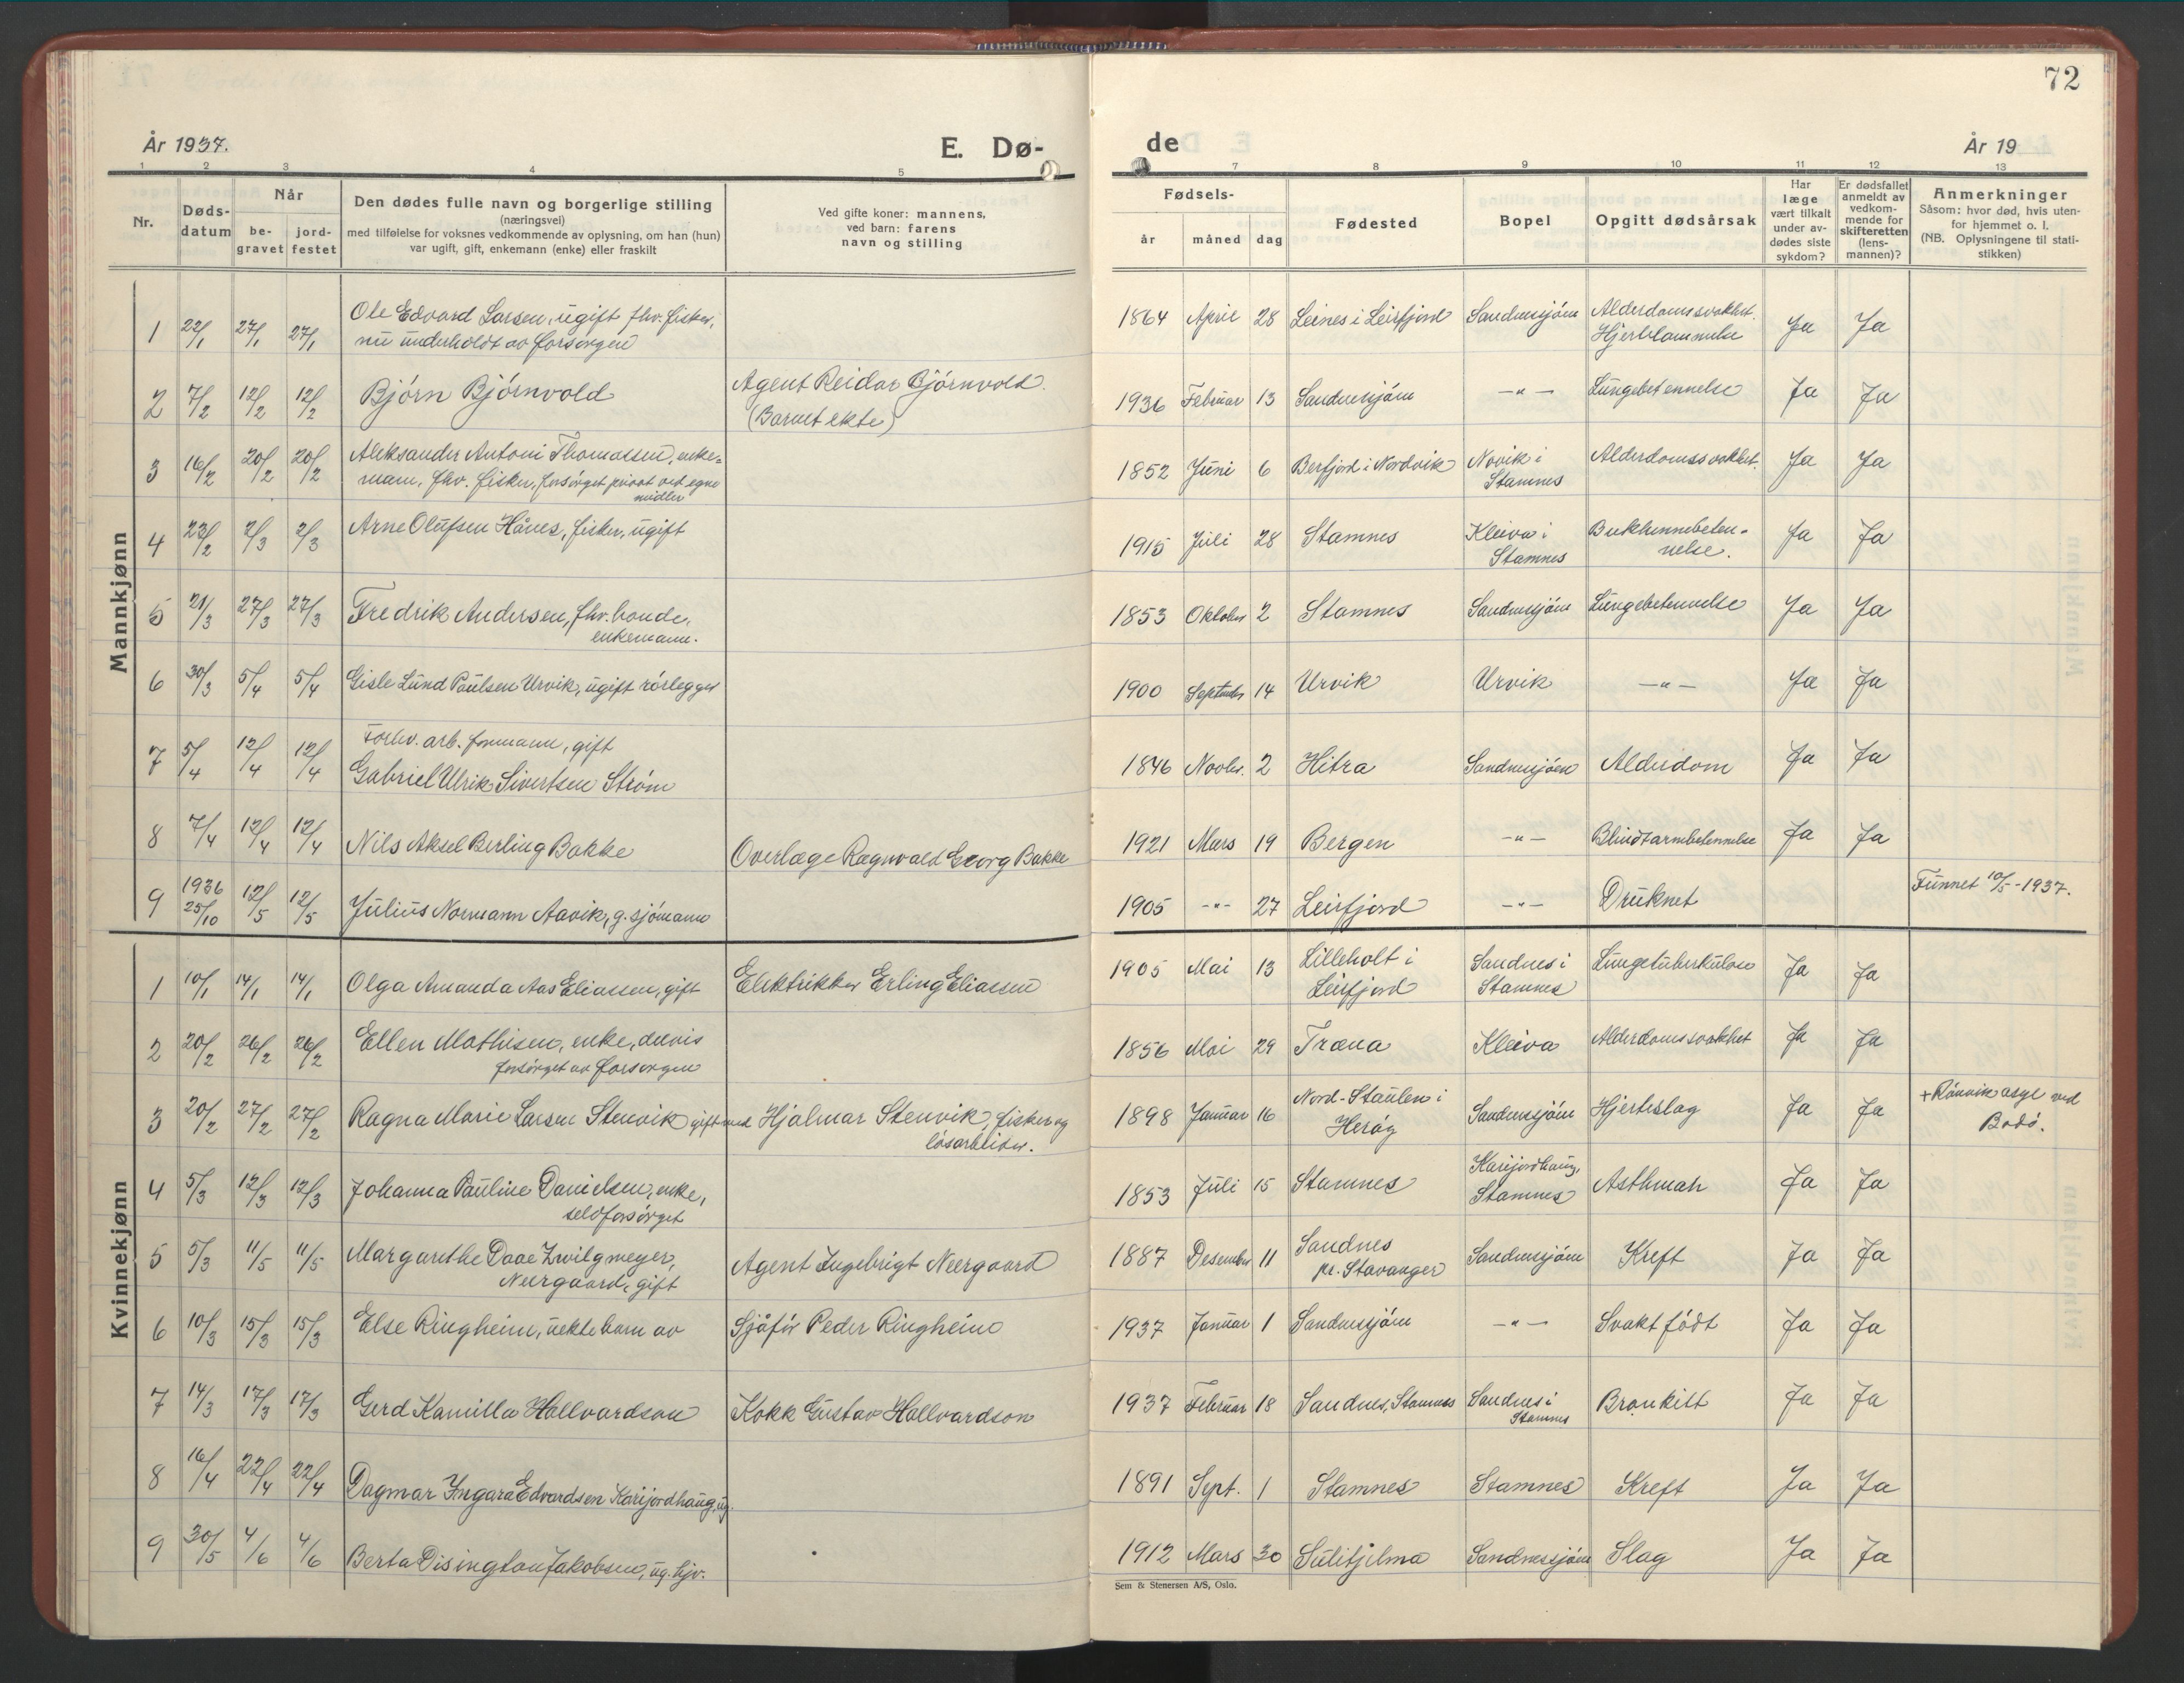 72
År 1937.
E. Dø-
de
År 19
1 2 3 4 5
7 8 9 10 11 12 13
Nr.
Døds-
datum
Når
be-
gravet
jord-
festet
Den dødes fulle navn og borgerlige stilling
(næringsvei)
med tilføielse for voksnes vedkommende av oplysning, om han (hun)
var ugift, gift, enkemann (enke) eller fraskilt
Ved gifte koner: mannens,
ved barn: farens
navn og stilling
Fødsels-
år måned dag
Fødested
Bopel
Opgitt dødsårsak
Har
læge
vært tilkalt
under av-
dødes siste
sykdom?
Er dødsfallet
anmeldt av
vedkom-
mende for
skifteretten
(lens-
mannen)?
Anmerkninger
Såsom: hvor død, hvis uten-
for hjemmet o. l.
(NB. Oplysningene til stati-
stikken)
Mannkjønn
1 22/1 27/1 27/1 Ole Edvard Larsen, ugift fhv. fisker,
nu underholdt av forsorgen
1864 April 28 Leines i Leirfjord Sandnessjøen Alderdomssvakhet.
Hjertelammelse Ja Ja
2 7/2 12/2 12/2 Bjørn Bjørnvold Agent Reidar Bjørnvold.
(Barnet ekte)
1936 Februar 13 Sandnessjøen —"— Lungebetennelse Ja Ja
3 16/2 20/2 20/2 Aleksander Antoni Thomassen, enke=
mann, fhv. fisker, forsørget privat ved egne
midler
1852 Juni 6 Berfjord i Nordvik Novik i
Stamnes Alderdomssvakhet. Ja Ja
4 23/2 2/3 2/3 Arne Olufsen Hånes, fisker, ugift
1915 Juli 28 Stamnes Kleiva i
Stamnes Bukhinnebeten-
nelse. Ja Ja
5 21/3 27/3 27/3 Fredrik Andersen, fhv. bonde,
enkemann.
1853 Oktober 2 Stamnes Sandnessjøen Lungebetennelse Ja Ja
6 30/3 5/4 5/4 Gisle Lund Paulsen Urvik, ugift rørlegger
1900 September 14 Urvik Urvik —"— Ja Ja
7 5/4 12/4 12/4 Forhv. arb. formann, gift
Gabriel Ulrik Sivertsen Strøm
1846 Novbr. 2 Hitra Sandnessjøen Alderdom Ja Ja
8 7/4 12/4 12/4 Nils Aksel Berling Bakke Overlæge Ragnvald Georg Bakke
1921 Mars 19 Bergen —"— Blindtarmbetennelse Ja Ja
9 1936
25/10 12/5 12/5 Julius Normann Aavik, g. sjømann
1905 -"- 27 Leirfjord —"— Druknet Funnet 10/5-1937.
Kvinnekjønn
1 10/1 14/1 14/1 Olga Amanda Aas Eliassen, gift Elektrikker Erling Eliassen
1905 Mai 13 Lilleholt i
Leirfjord Sandnes i
Stamnes Lungetuberkulose Ja Ja
2 20/2 26/2 26/2 Ellen Mathisen, enke, delvis
forsørget av forsorgen
1856 Mai 29 Træna Kleiva Alderdomssvakhet Ja Ja
3 20/2 27/2 27/2 Ragna Marie Larsen Stenvik gift med Hjalmar Stenvik, fisker og
løsarbeider.
1898 Januar 16 Nord-Staulen i
Herøy Sandnessjøen Hjerteslag Ja Ja + Rønvik asyl ved
Bodø.
4 5/3 12/3 12/3 Johanna Pauline Danielsen, enke,
selvforsørget
1853 Juli 15 Stamnes Karijordhaug,
Stamnes Asthmah Ja Ja
5 5/3 11/5 11/5 Margarethe Daae Zwilgmeyer,
Neergaard, gift Agent Ingebrigt Neergaard
1887 Desember 11 Sandnes
pr. Stavanger Sandnessjøen Kreft Ja Ja
6 10/3 15/3 15/3 Else Ringheim, uekte barn av Sjåfør Peder Ringheim
1937 Januar 1 Sandnessjøen —"— Svakt født Ja Ja
7 14/3 17/3 17/3 Gerd Kamilla Hallvardson Kokk Gustav Hallvardson
1937 Februar 18 Sandnes, Stamnes Sandnes i
Stamnes Bronkitt Ja Ja
8 16/4 22/4 22/4 Dagmar Yngara Edvardsen Karijordhaug, ug.
1891 Sept. 1 Stamnes Stamnes Kreft Ja Ja
9 30/5 4/6 4/6 Berta Disington Jakobsen, ug. hjv.
1912 Mars 30 Sulitjelma Sandnessjøen Slag Ja Ja
Sem & Stenersen A/S, Oslo.